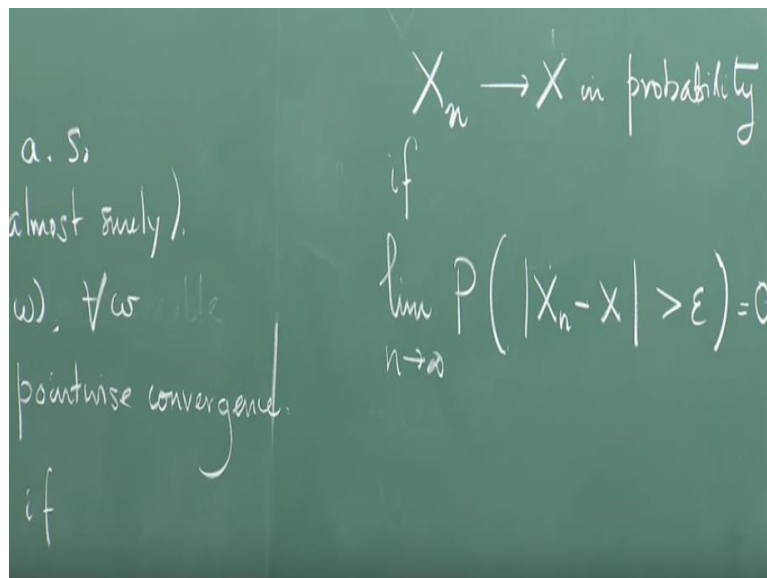 a. s.
almost surely).
ω), ∀ω
pointwise convergence.
if
Xₙ → X in probability
if
lim P( |Xₙ - X| > ε ) = 0
n→∞